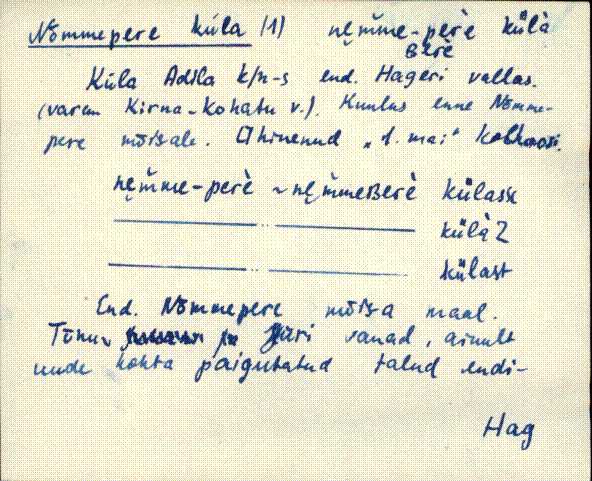 Nõmmepere küla /1/ nę̆m̆me-perè külà
Berè
Küla Adila k/n-s end. Hageri vallas.
(varem Kirna-Kohatu v.). Kuulus enne Nõmme-
pere mõisale. Ühinenud „1. mai" kolhoosi.
nę̆m̆me-perè ~ nę̆m̆meBerè külasse
——— " ——— külàZ
——— " ——— külast
End. Nõmmepere mõisa maal.
Tõnu, Jüri vanad, ainult
uude kohta paigutatud talud endi-
Hag